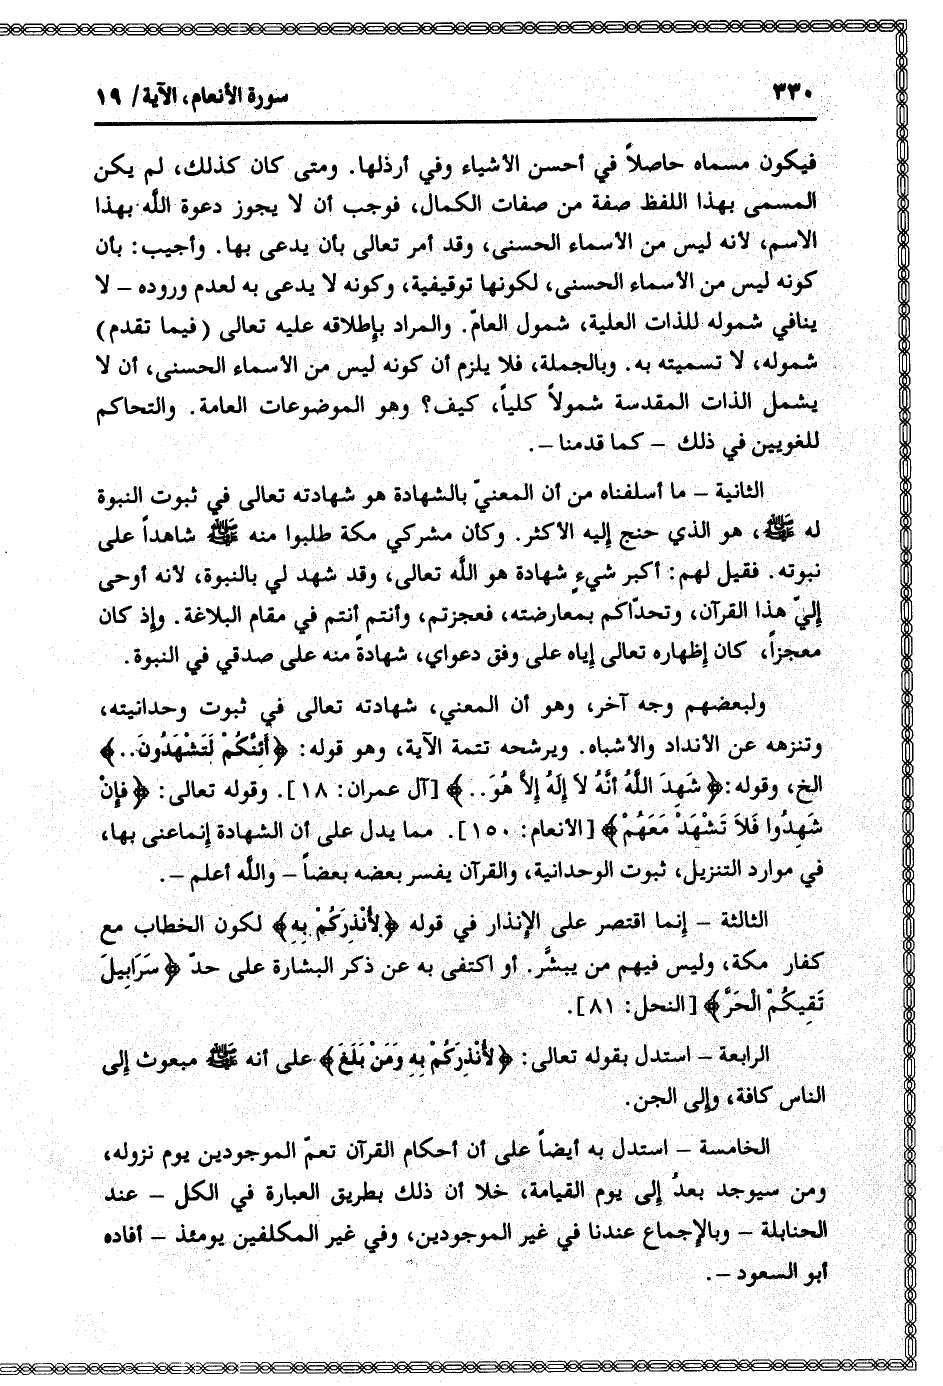 ٣٣٠
سورة الأنعام، الآية/ ١٩
فيكون مسماه حاصلاً في أحسن الأشياء وفي أرذلها. ومتى كان كذلك، لم يكن
المسمى بهذا اللفظ صفة من صفات الكمال، فوجب أن لا يجوز دعوة اللَّه بهذا
الاسم، لأنه ليس من الأسماء الحسنى، وقد أمر تعالى بأن يدعى بها. وأجيب: بأن
كونه ليس من الأسماء الحسنى، لكونها توقيفية، وكونه لا يدعى به لعدم وروده – لا
ينافي شموله للذات العلية، شمول العامّ. والمراد بإطلاقه عليه تعالى (فيما تقدم)
شموله، لا تسميته به. وبالجملة، فلا يلزم أن كونه ليس من الأسماء الحسنى، أن لا
يشمل الذات المقدسة شمولاً كلياً، كيف؟ وهو الموضوعات العامة. والتحاكم
للغويين في ذلك – كما قدمنا –.
الثانية – ما أسلفناه من أن المعنيّ بالشهادة هو شهادته تعالى في ثبوت النبوة
له ﷺ، هو الذي جنح إليه الأكثر. وكأن مشركي مكة طلبوا منه ﷺ شاهداً على
نبوته. فقيل لهم: أكبر شيءٍ شهادة هو اللَّه تعالى، وقد شهد لي بالنبوة، لأنه أوحى
إليّ هذا القرآن، وتحدّاكم بمعارضته، فعجزتم، وأنتم أنتم في مقام البلاغة. وإذ كان
معجزاً، كان إظهاره تعالى إياه على وفق دعواي، شهادةً منه على صدقي في النبوة.
ولبعضهم وجه آخر، وهو أن المعني، شهادته تعالى في ثبوت وحدانيته،
وتنزهه عن الأنداد والأشباه. ويرشحه تتمة الآية، وهو قوله: ﴿أَئِنَّكُمْ لَتَشْهَدُونَ..﴾
الخ، وقوله: ﴿شَهِدَ اللَّهُ أَنَّهُ لاَ إِلَهَ إِلاَّ هُوَ..﴾ [آل عمران: ١٨]. وقوله تعالى: ﴿فَإِنْ
شَهِدُوا فَلاَ تَشْهَدْ مَعَهُمْ﴾ [الأنعام: ١٥٠]. مما يدل على أن الشهادة إنماعنى بها،
في موارد التنزيل، ثبوت الوحدانية، والقرآن يفسر بعضه بعضاً – واللَّه أعلم –.
الثالثة – إنما اقتصر على الإنذار في قوله ﴿لأُنْذِرَكُمْ بِهِ﴾ لكون الخطاب مع
كفار مكة، وليس فيهم من يبشَّر. أو اكتفى به عن ذكر البشارة على حدّ ﴿سَرَابِيلَ
تَقِيكُمْ الْحَرَّ﴾ [النحل: ٨١].
الرابعة – استدل بقوله تعالى: ﴿لأُنْذِرَكُمْ بِهِ وَمَنْ بَلَغَ﴾ على أنه ﷺ مبعوث إلى
الناس كافة، وإلى الجن.
الخامسة – استدل به أيضاً على أن أحكام القرآن تعمّ الموجودين يوم نزوله،
ومن سيوجد بعدُ إلى يوم القيامة، خلا أن ذلك بطريق العبارة في الكل – عند
الحنابلة – وبالإجماع عندنا في غير الموجودين، وفي غير المكلفين يومئذ – أفاده
أبو السعود –.